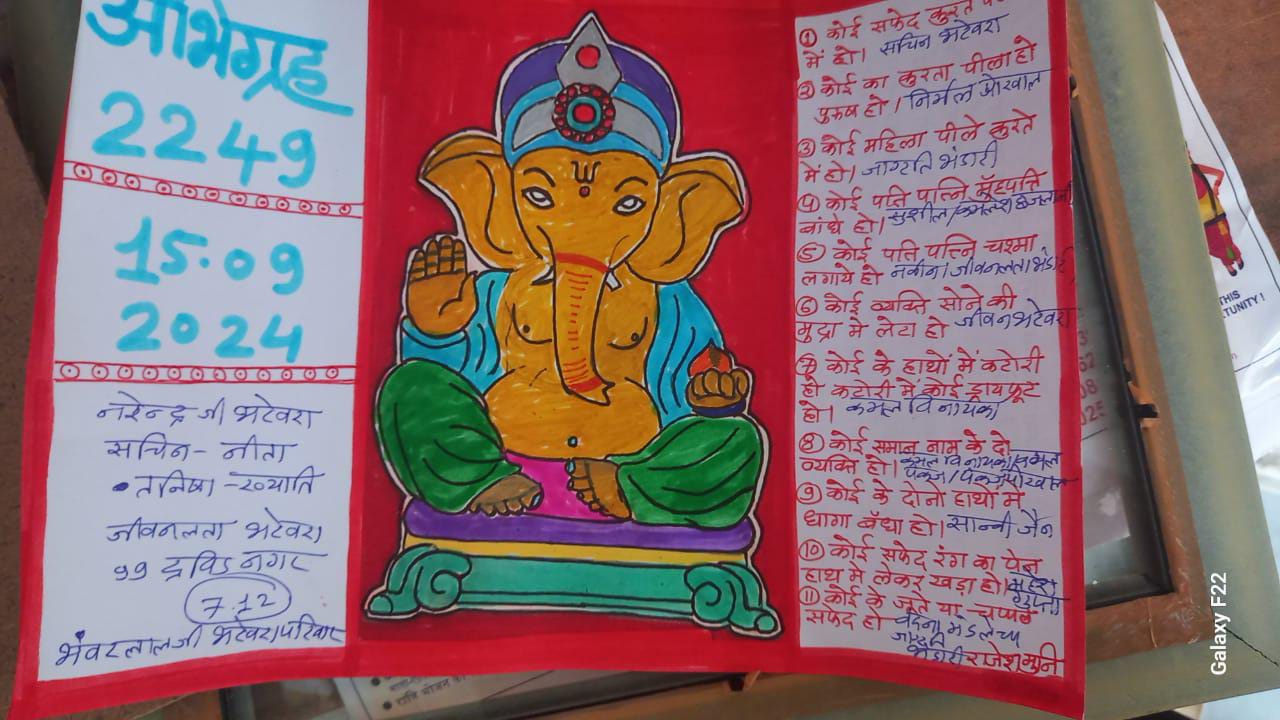 अभिग्रह
2249
15.09
2024
नरेन्द्र जी भटेवरा
सचिन - नीता
• तनिषा - ख्याति
जीवनलता भटेवरा
99 द्रविड नगर
7.12
भंवरलालजी भटेवरा परिवार
① कोई सफेद कुरते
में हो। सचिन भटेवरा
② कोई का कुरता पीला हो
पुरुष हो। निर्मल पोरवाल
③ कोई महिला पीले कुरते
में हो। जाग्रति भंडारी
④ कोई पति पत्नि मुँहपत्ति
बांधे हो। सुशील/कमलेश
⑤ कोई पति पत्नि चश्मा
लगाये हो नवीन/जीवनलता भंडारी
⑥ कोई व्यक्ति सोने की
मुद्रा मे लेटा हो जीवन भटेवरा
⑦ कोई के हाथों में कटोरी
हो कटोरी में कोई ड्रायफ्रूट
हो। कमल विनायका
⑧ कोई समान नाम के दो
व्यक्ति हो। कमल विनायका/कमल
⑨ कोई के दोनो हाथों में
धागा बँधा हो। सान्वी जैन
⑩ कोई सफेद रंग का पेन
हाथ मे लेकर खड़ा हो।
गुप्ता
⑪ कोई के जूते या चप्पल
सफेद हो वंदना मंडलेचा
जाग्रति
भंडारी राजेश मुनि
THIS
TUNITY!
Galaxy F22